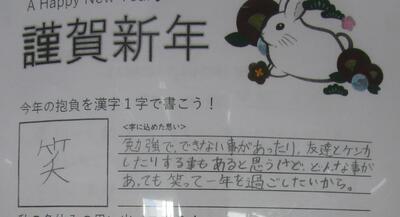 A Happy New Year
謹賀新年
今年の抱負を漢字1字で書こう!
<字に込めた思い>
笑
勉強で、できない事があったり、友達とケンカ
したりする事もあると思うけど、どんな事が
あっても笑って一年を過ごしたいから。